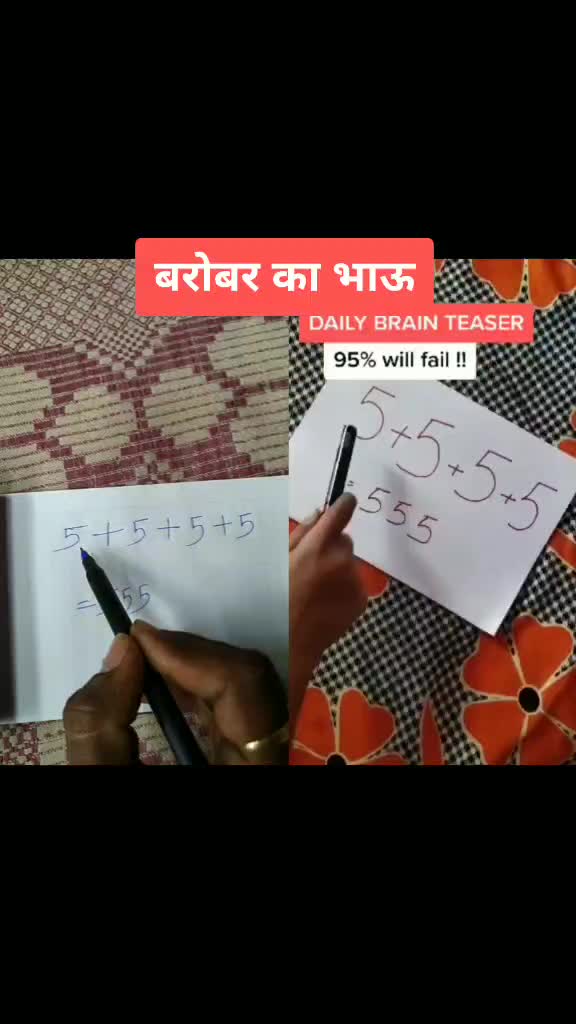 बरोबर का भाऊ
DAILY BRAIN TEASER
95% will fail !!
5+5+5+5
= 555
5+5+5+5
= 555